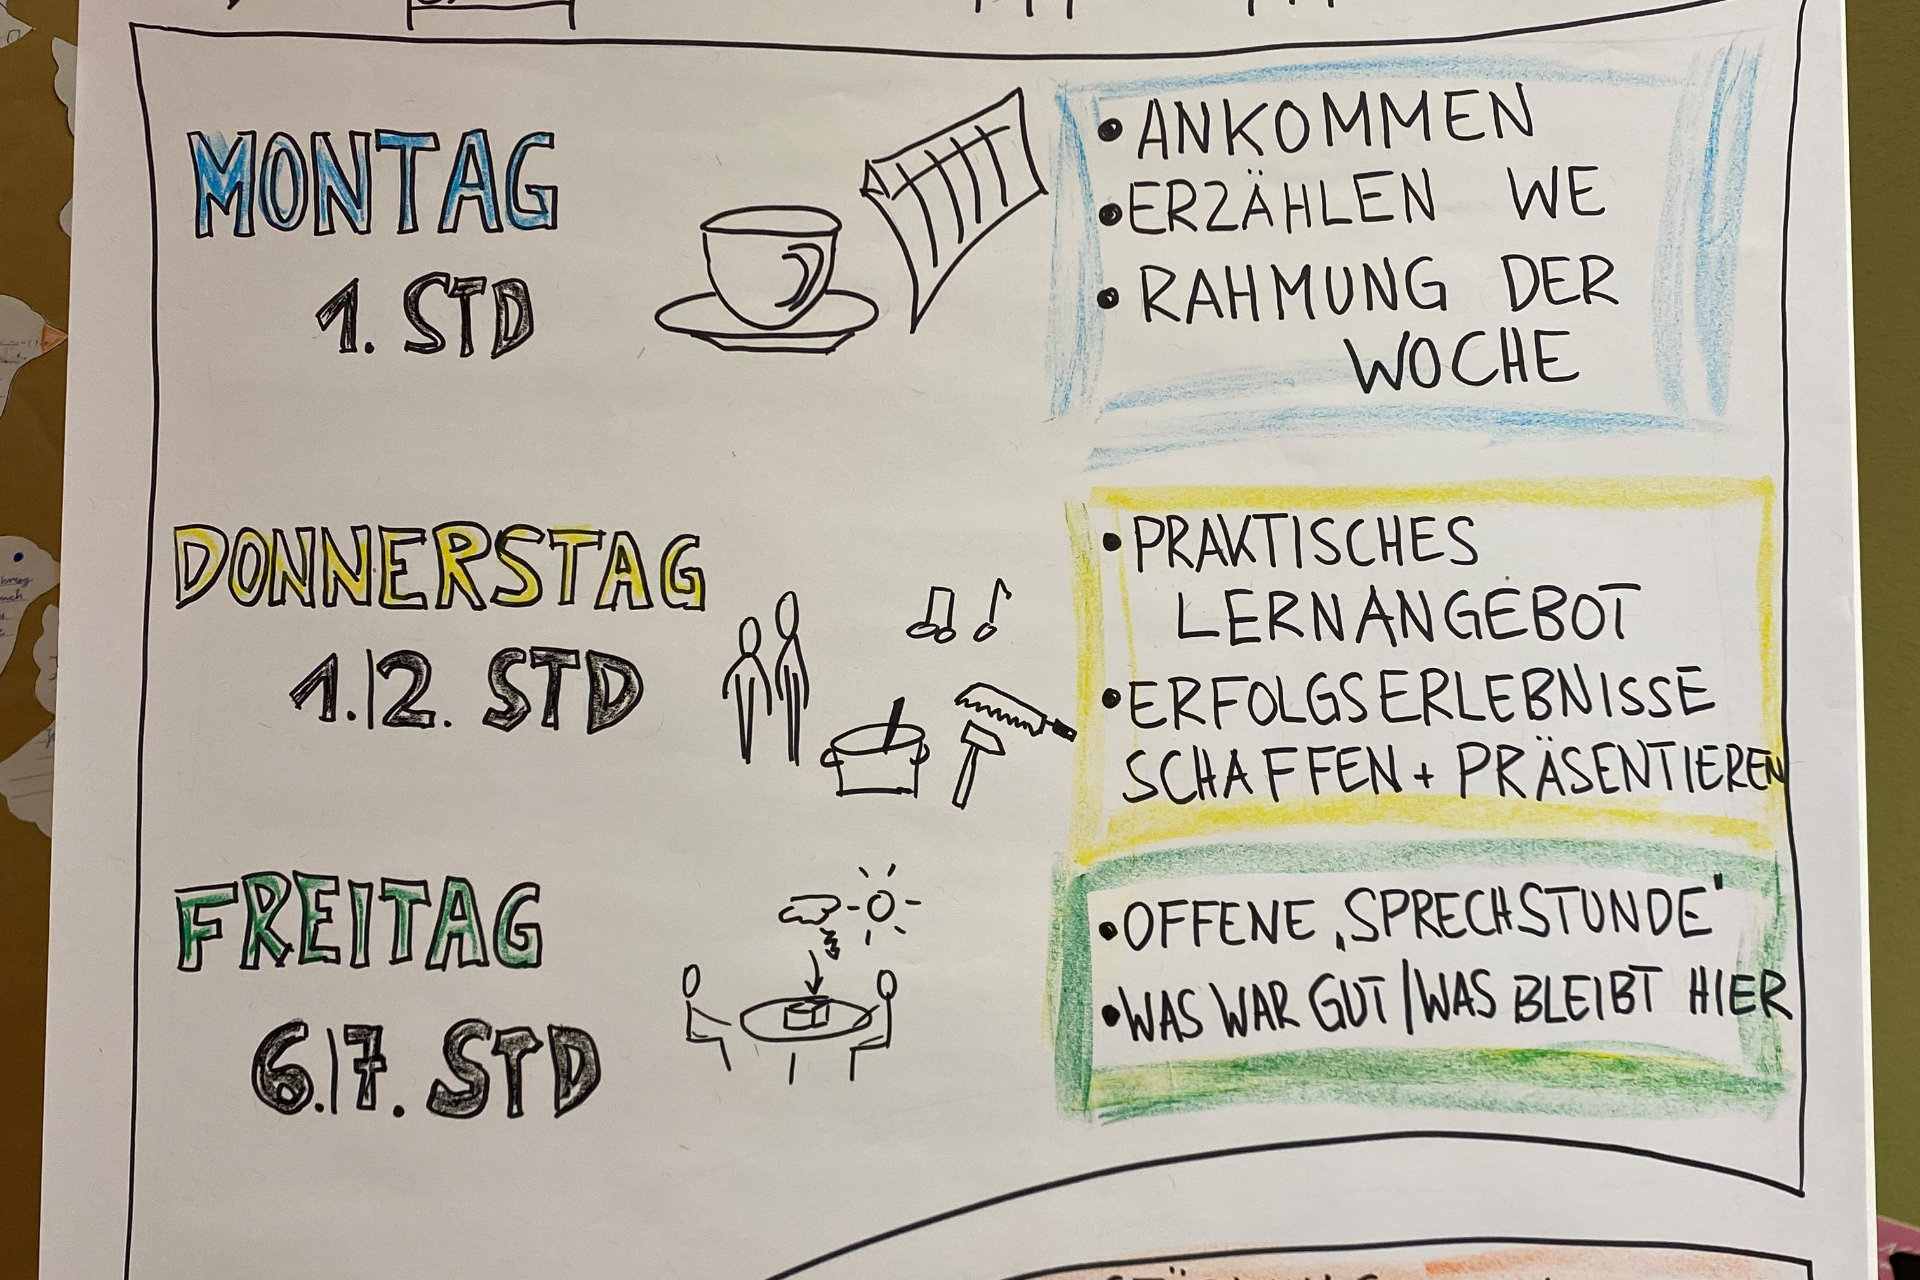 MONTAG
1. STD
• ANKOMMEN
• ERZÄHLEN WE
• RAHMUNG DER
WOCHE
DONNERSTAG
1./2. STD
• PRAKTISCHES
LERNANGEBOT
• ERFOLGSERLEBNISSE
SCHAFFEN + PRÄSENTIEREN
FREITAG
6./7. STD
• OFFENE „SPRECHSTUNDE"
• WAS WAR GUT / WAS BLEIBT HIER